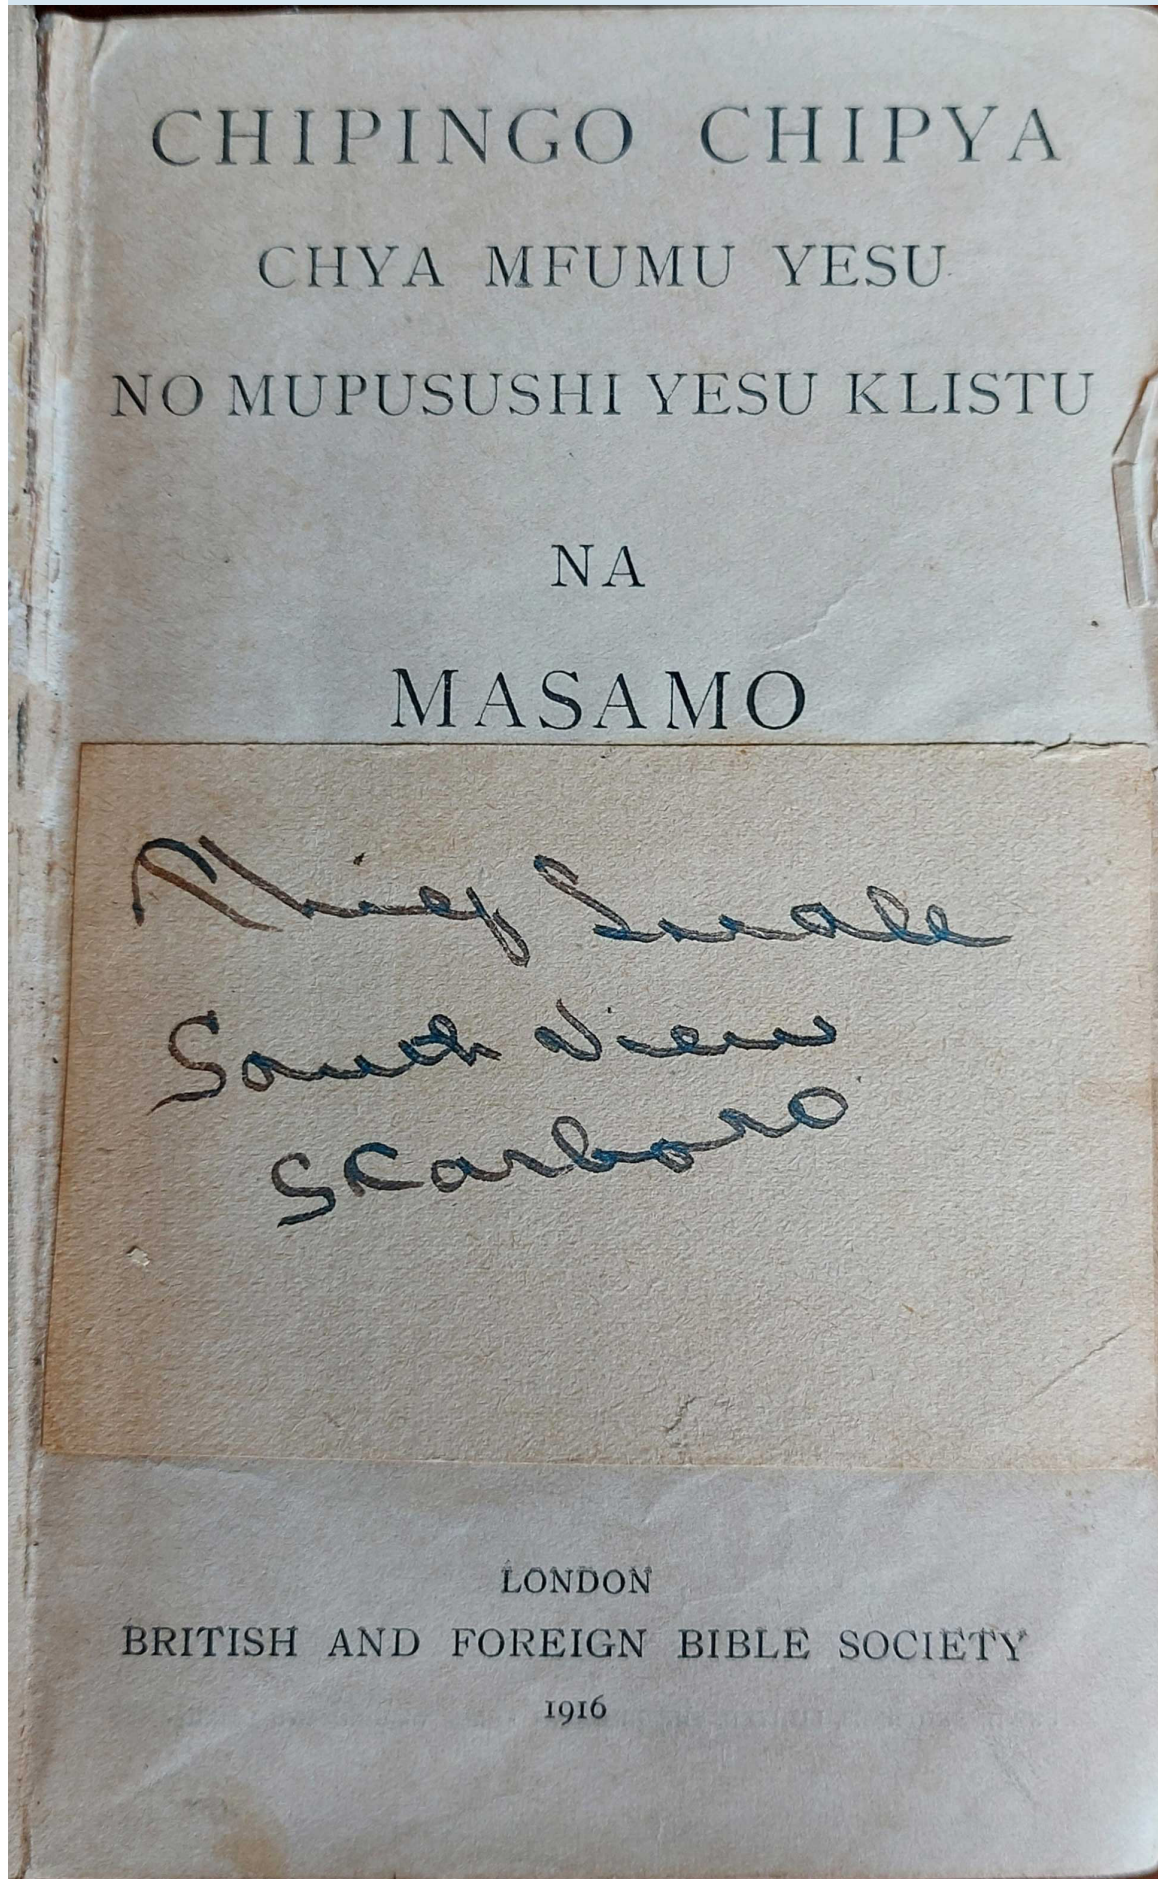 CHIPINGO CHIPYA
CHYA MFUMU YESU
NO MUPUSUSHI YESU KLISTU
NA
MASAMO
Philip Smale
South View
Scarboro
LONDON
BRITISH AND FOREIGN BIBLE SOCIETY
1916